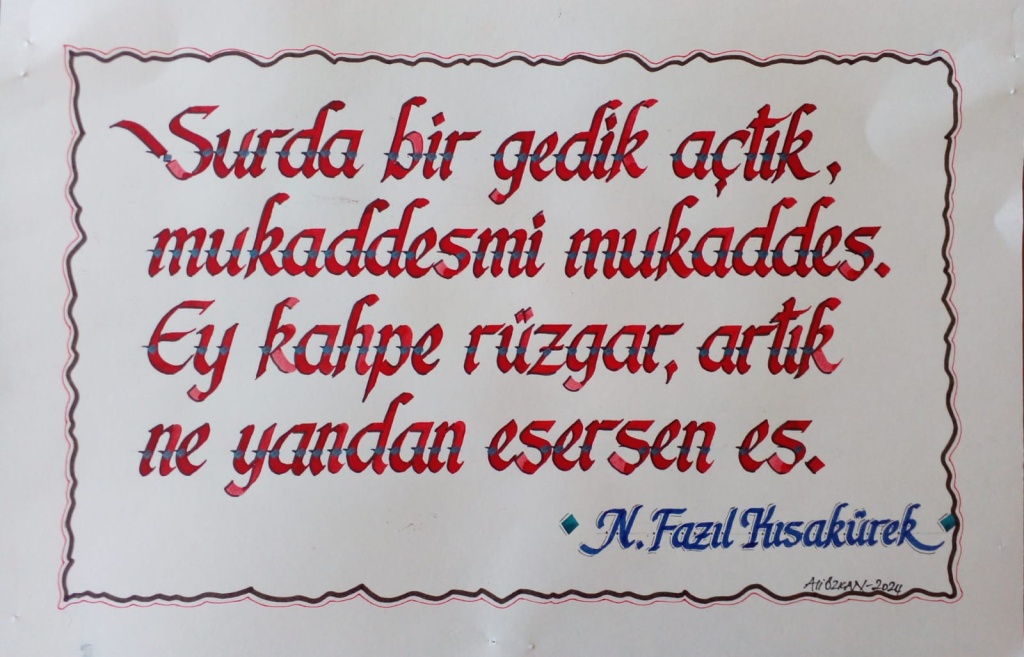 Surda bir gedik açtık,
mukaddesmi mukaddes.
Ey kahpe rüzgar, artık
ne yandan esersen es.
N. Fazıl Kısakürek
Ali ÖZKAN-2024